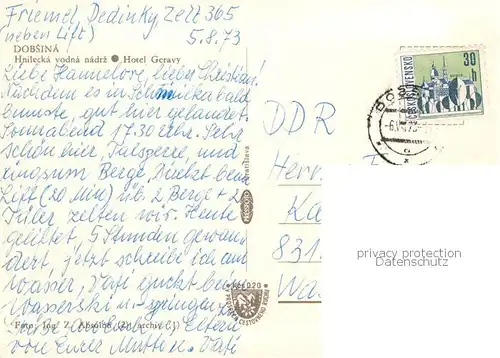 Friemel, Dedinky Zelt 365
(neben Lift) 5.8.73
DOBŠINÁ
Hnilecká vodná nádrž ● Hotel Geravy
Liebe Hannelore, lieber Christian!
Nachdem es in Schmilka bald
bumste, gut hier gelandet.
Sonnabend 17.30 Uhr. Sehr
schön hier, Talsperre, und
ringsum Berge. Direkt beim
Lift (20 Min) üb. 2 Berge + 2
Täler zelten wir. Heute
geliftet, 5 Stunden gewan-
dert, jetzt schreibe ich am
Wasser, Vati guckt beim
Wasserski u. springen zu
Eltern
von Eurer Mutti u. Vati
Foto: Ing. Z. Absolon (2), archív (1)
PRESSFOTO Bratislava
K 64 020
ČESKOSLOVENSKO
30 h
DOBŠ
DDR
Herr
F
Ka
831
privacy protection
Datenschutz